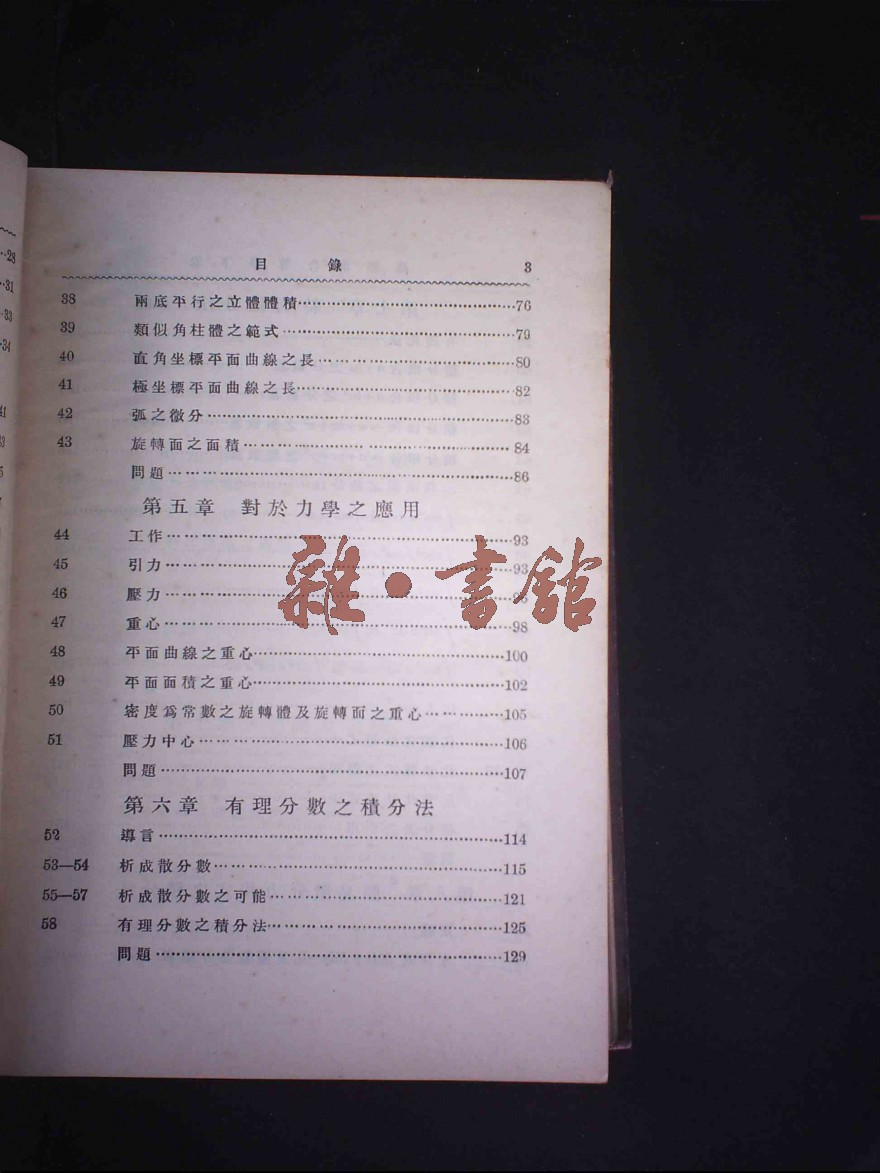 目錄 3
38 兩底平行之立體體積 76
39 類似角柱體之範式 79
40 直角坐標平面曲線之長 80
41 極坐標平面曲線之長 82
42 弧之微分 83
43 旋轉面之面積 84
問題 86
第五章 對於力學之應用
44 工作 93
45 引力 93
46 壓力
47 重心 98
48 平面曲線之重心 100
49 平面面積之重心 102
50 密度爲常數之旋轉體及旋轉面之重心 105
51 壓力中心 106
問題 107
第六章 有理分數之積分法
52 導言 114
53—54 析成散分數 115
55—57 析成散分數之可能 121
58 有理分數之積分法 125
問題 129
雜·書館